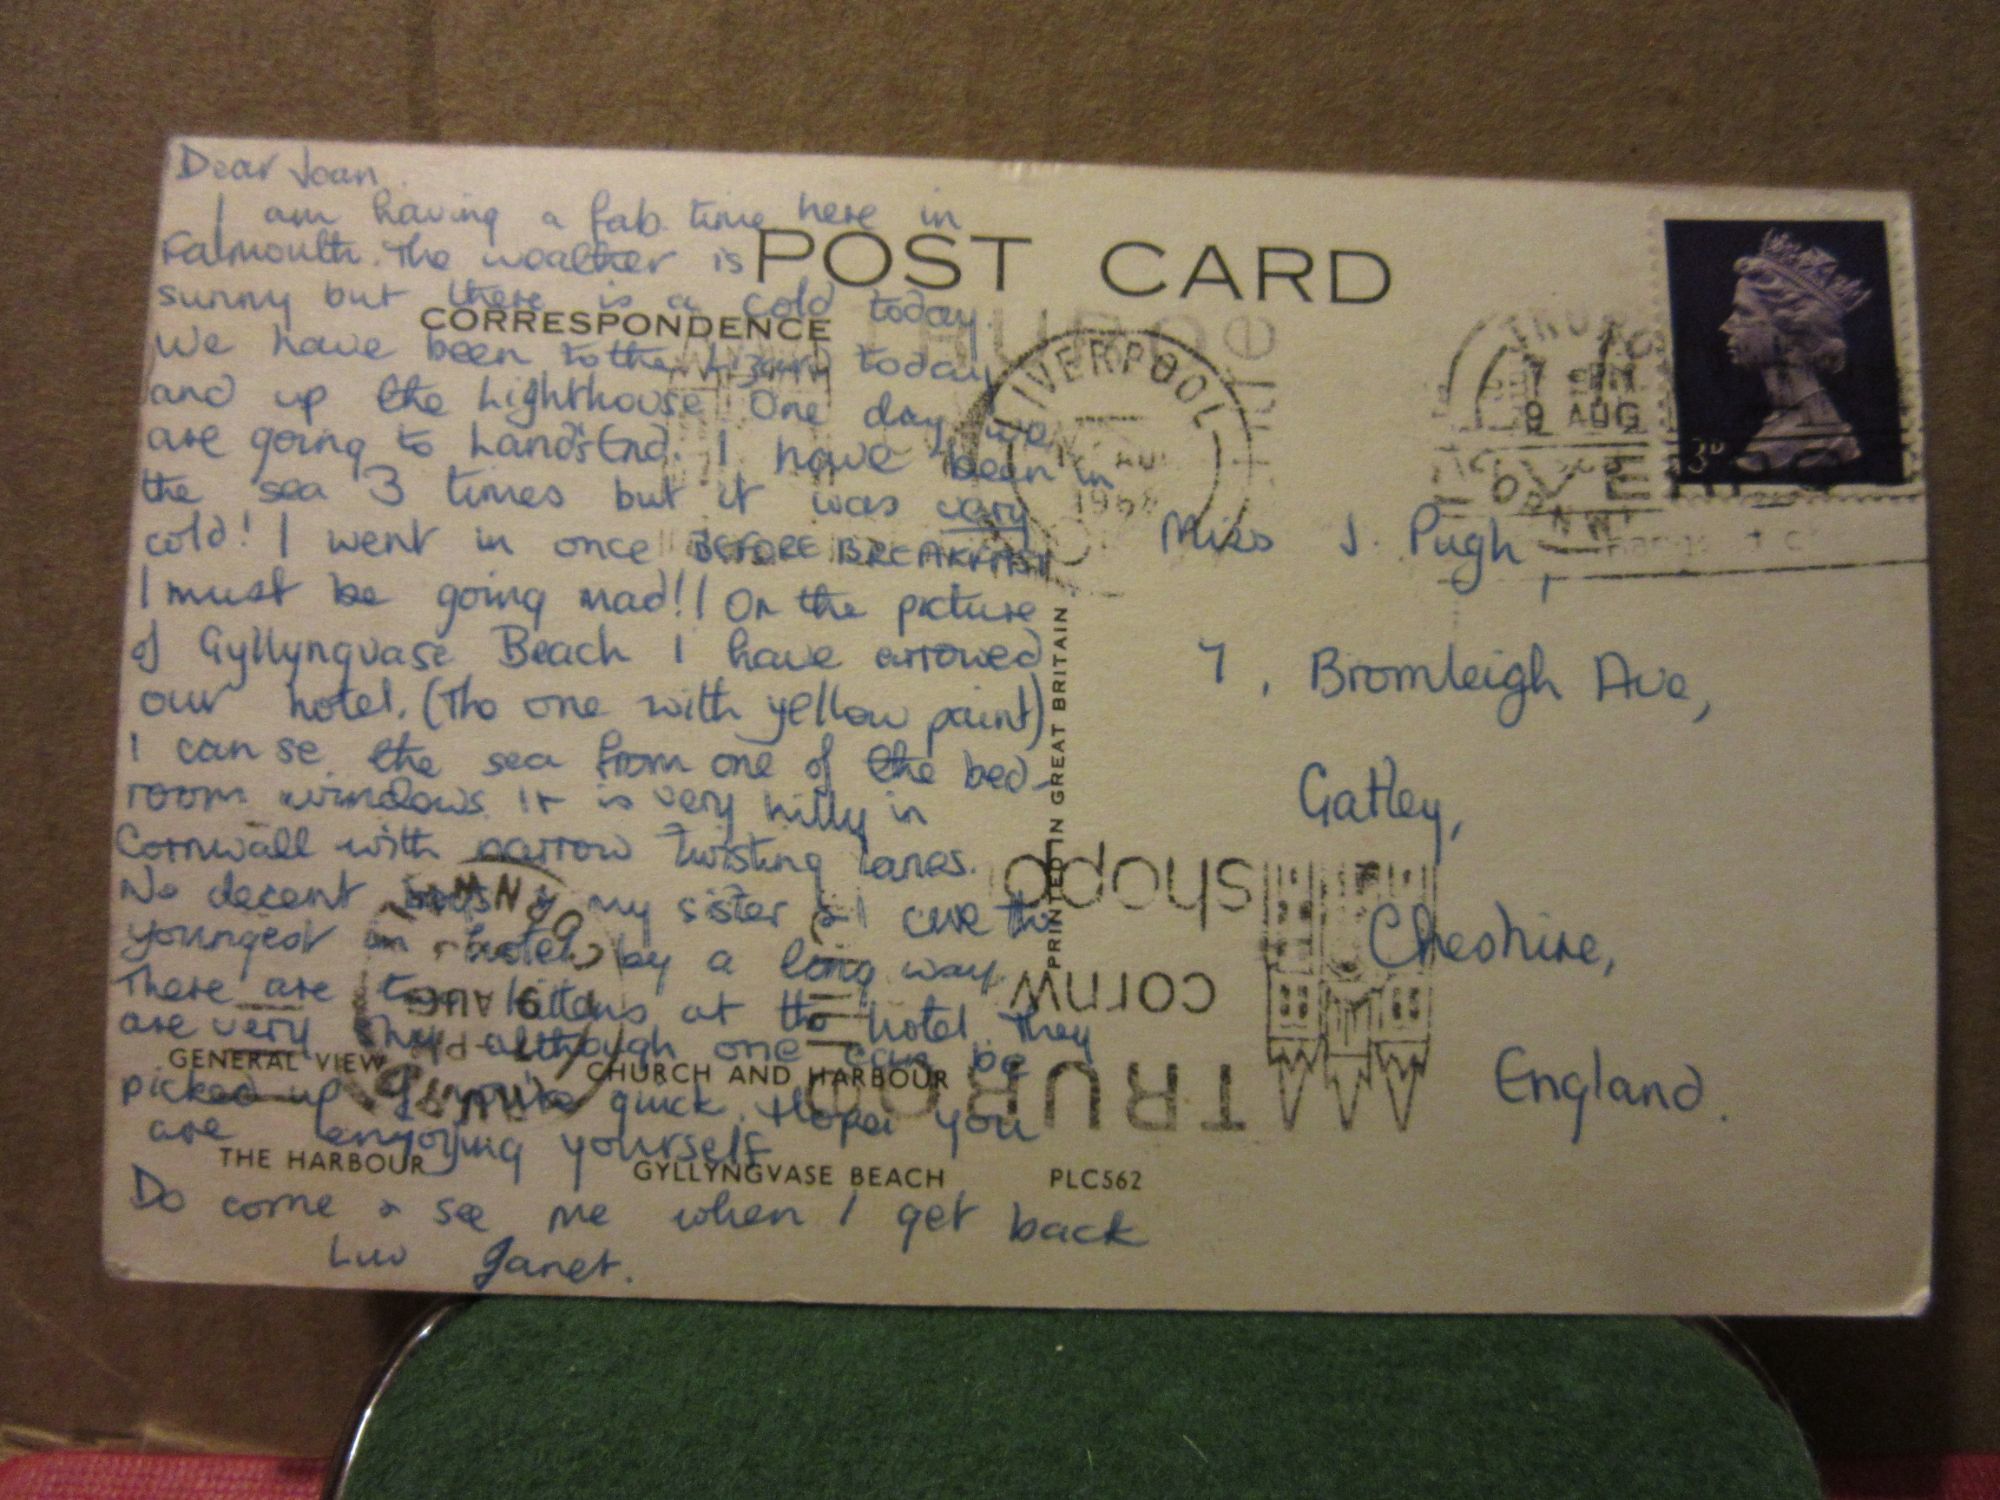 Dear Joan
I am having a fab time here in
Falmouth. The weather is
sunny but there is a cold today.
We have been to the Lizard today
and up the Lighthouse One day we
are going to Land's End. I have been in
the sea 3 times but it was very
cold! I went in once BEFORE BREAKFAST
I must be going mad!! On the picture
of Gyllyngvase Beach I have arrowed
our hotel. (The one with yellow paint)
I can se the sea from one of the bed-
room windows. It is very hilly in
Cornwall with narrow twisting lanes.
No decent my sister & I are the
youngest in hotel by a long way
There are two kittens at the hotel. They
are very shy although one can be
picked up quick. Hope you
are enjoying yourself
Do come & see me when I get back
Luv Janet.
POST CARD
CORRESPONDENCE
LIVERPOOL
AUG
1968
TRURO
9 AUG
3D
Miss J. Pugh,
7, Bromleigh Ave,
Gatley,
Cheshire,
England.
PRINTED IN GREAT BRITAIN
TRURO
cornw
shopp
9 AUG
GENERAL VIEW
CHURCH AND HARBOUR
THE HARBOUR
GYLLYNGVASE BEACH
PLC562